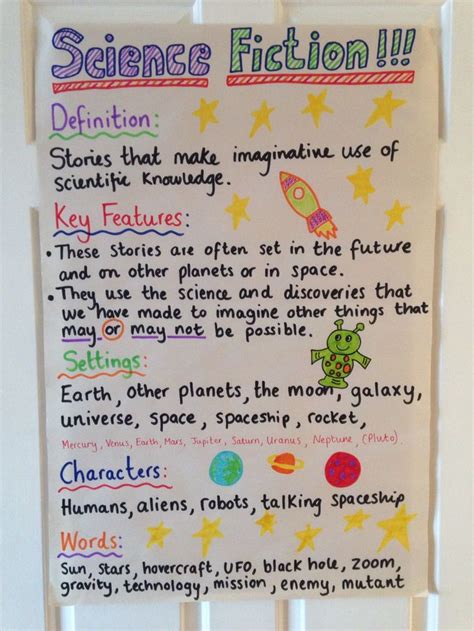 Science Fiction!!!
Definition:
Stories that make imaginative use of
Scientific Knowledge.
Key Features:
• These Stories are often set in the future
and on other planets or in space.
• They use the science and discoveries that
we have made to imagine other things that
may or may not be possible.
Settings:
Earth, other planets, the moon, galaxy,
universe, space, spaceship, rocket,
Mercury, Venus, Earth, Mars, Jupiter, Saturn, Uranus, Neptune, (Pluto)
Characters:
Humans, aliens, robots, talking spaceship
Words:
Sun, stars, hovercraft, UFO, black hole, zoom,
gravity, technology, mission, enemy, mutant